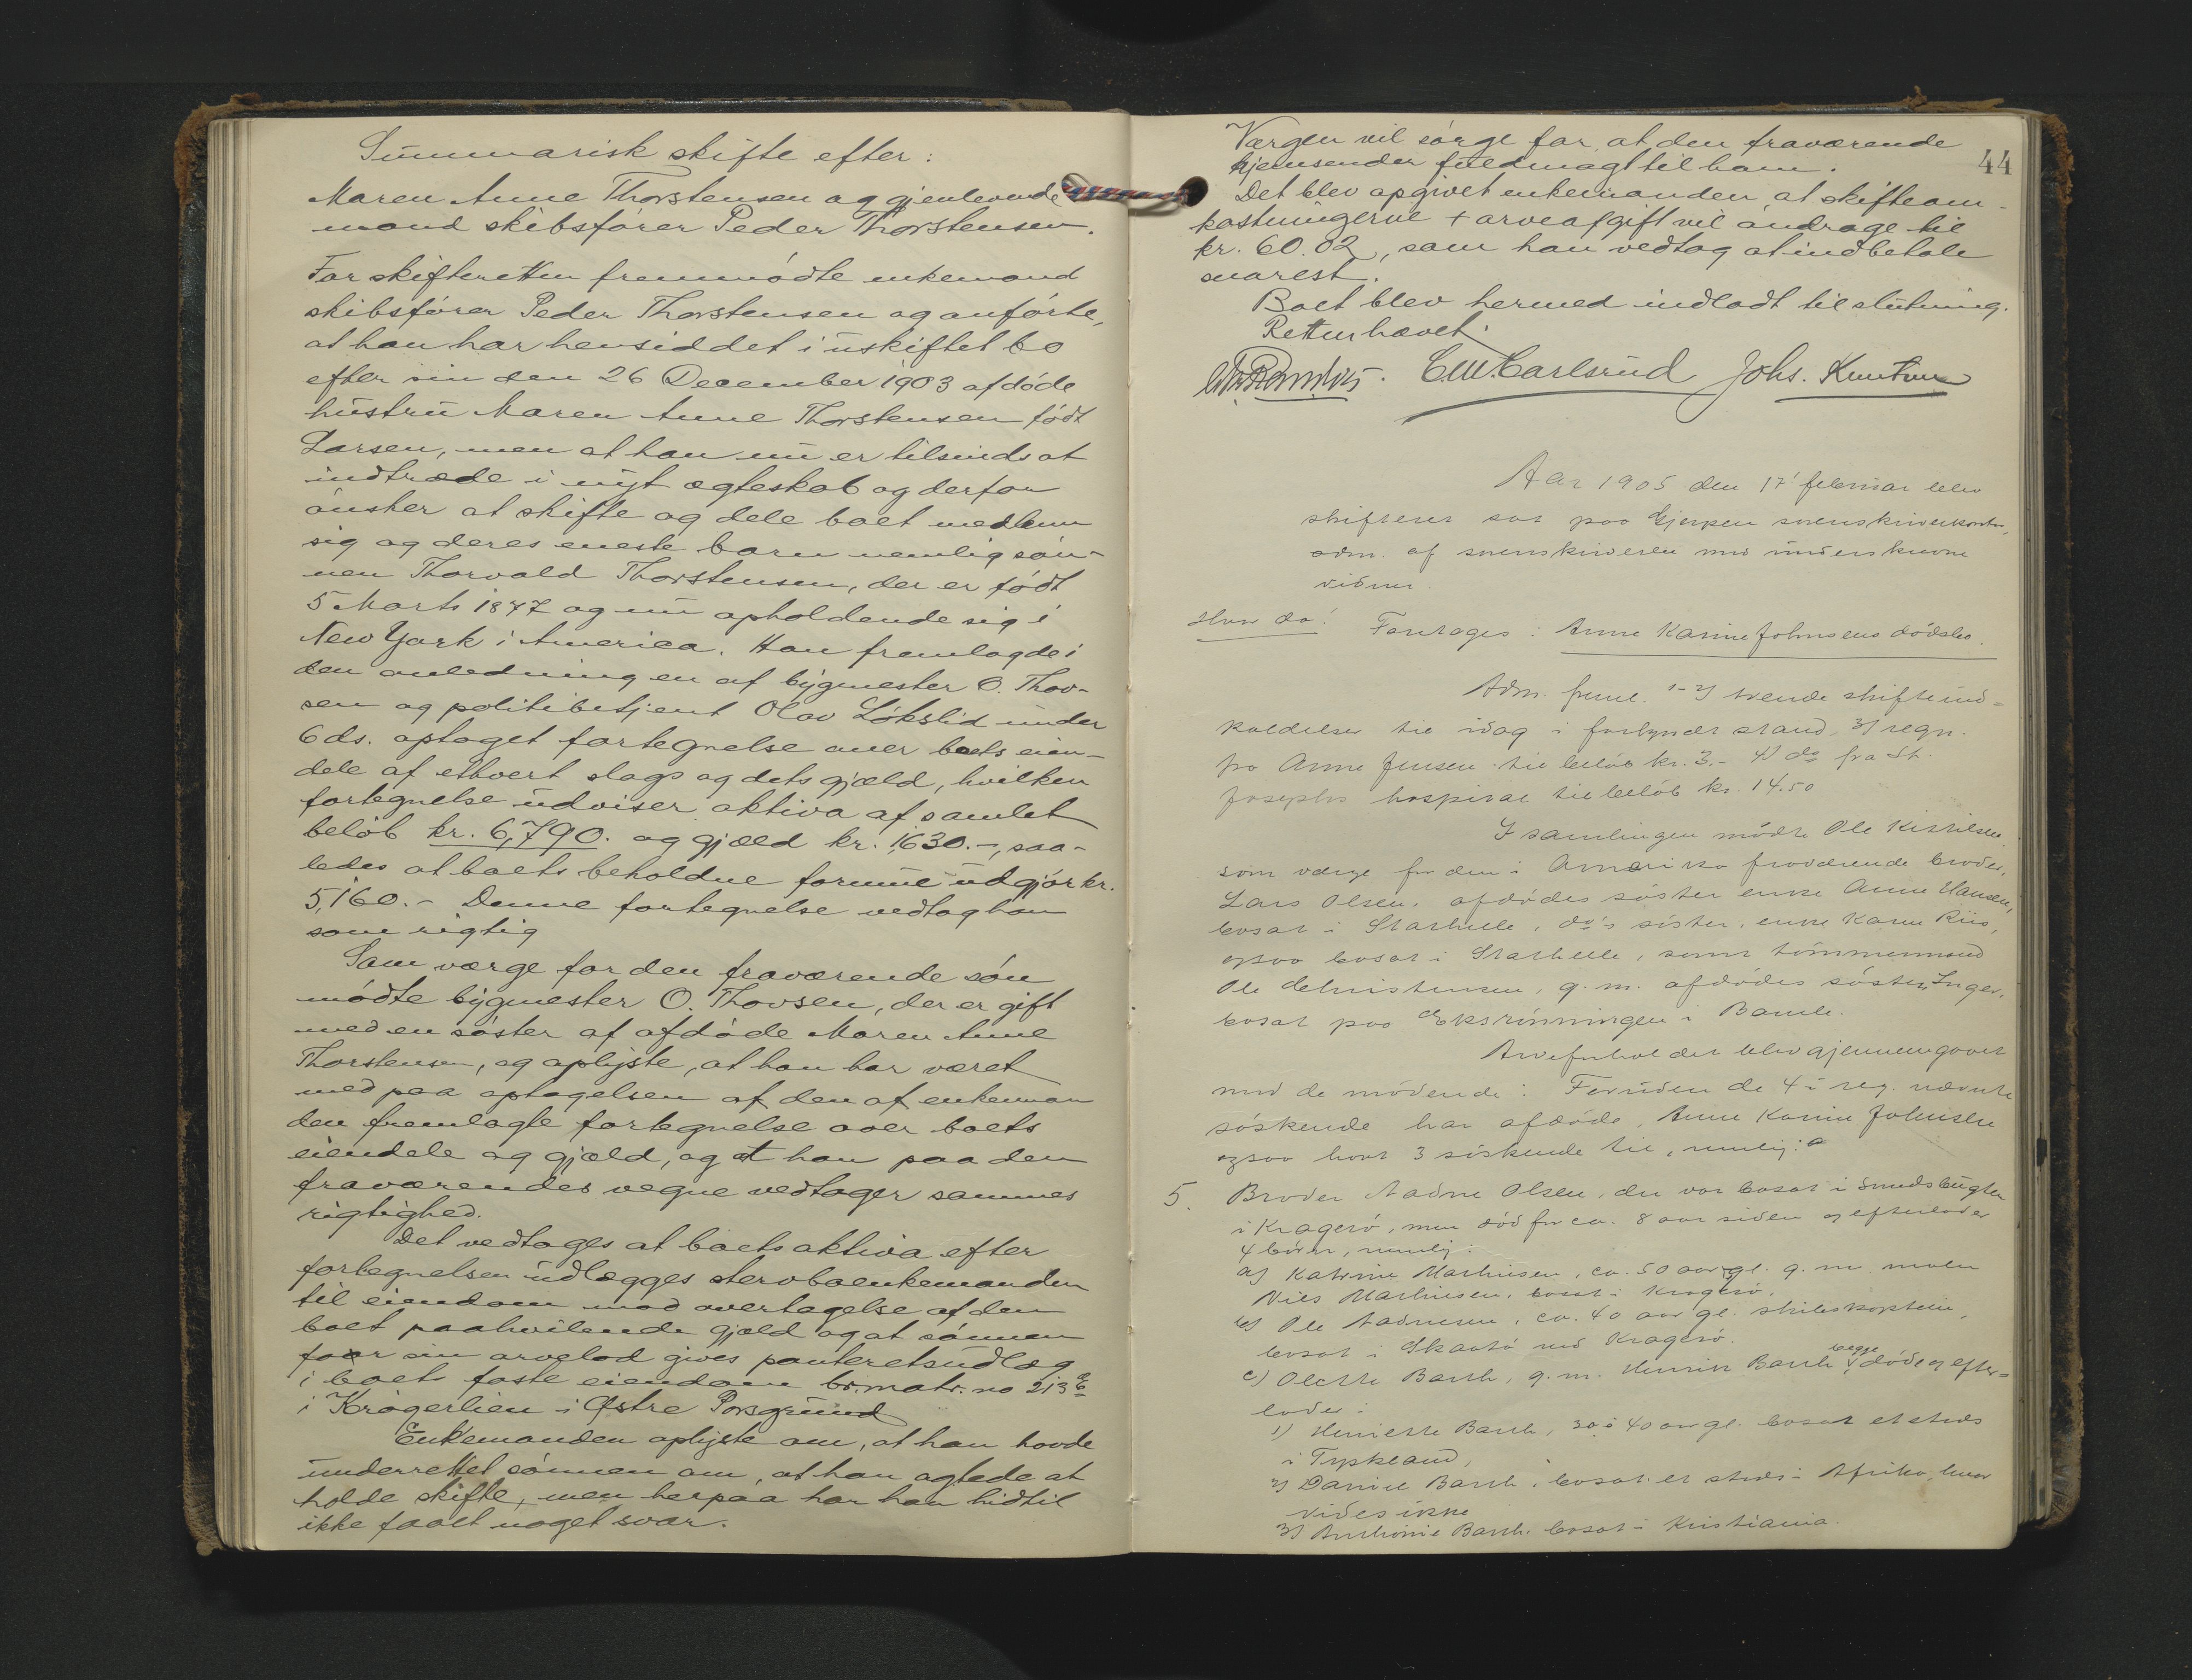 Summarisk skifte efter:
Maren Anne Thorstensen og gjenlevende
mand skibsfører Peder Thorstensen.
For skifteretten fremmødte enkemand
skibsfører Peder Thorstensen og anførte,
at han har hensiddet i uskiftet bo
efter sin den 26 December 1903 afdøde
hustru Maren Anne Thorstensen født
Larsen, men at han nu er tilsinds at
indtræde i nyt ægteskab og derfor
ønsker at skifte og dele boet mellem
sig og deres eneste barn nemlig søn-
nen Thorvald Thorstensen, der er født
5 Marts 1877 og nu opholdende sig i
New York i America. Han fremlagde i
den anledning en af bygmester O. Thov-
sen og politibetjent Olav Løkslid under
6 ds. optaget fortegnelse over boets eien-
dele af ethvert slags og dets gjæld, hvilken
fortegnelse udviser aktiva af samlet
beløb kr. 6,790. og gjæld kr. 1,630.-, saa-
ledes at boets beholdne formue udgjør kr.
5,160.- Denne fortegnelse vedtog han
som rigtig
Som værge for den fraværende søn
mødte bygmester O. Thovsen, der er gift
med en søster af afdøde Maren Anne
Thorstensen, og oplyste, at han har været
med paa optagelsen af den af enkeman
den fremlagte fortegnelse over boets
eiendele og gjæld, og at han paa den
fraværendes vegne vedtager sammes
rigtighed.
Det vedtages at boets aktiva efter
fortegnelsen udlægges stervboenkemanden
til eiendom mod overtagelse af den
boet paahvilende gjæld og at sønnen
for sin arvelod gives panteretsudlæg
i boets faste eiendom br.matr. no 213
i Krøgerlien i Østre Porsgrund
Enkemanden oplyste om, at han havde
underrettet sønnen om, at han agtede at
holde skifte, men herpaa har han hidtil
ikke faaet noget svar.
44
Værgen vil sørge for, at den fraværende
hjemsender fuldmagt til ham.
Det blev opgivet enkemanden, at skifteom-
kostningerne + arveafgift vil andrage til
kr. 60.02, som han vedtog at indbetale
snarest.
Boet blev hermed indladt til slutning.
Retten hævet.
C.W. Carlsrud Johs. Knutsen
Aar 1905 den 17 februar blev
skifteret sat paa Gjerpen sorenskriverkontor,
adm. af sorenskriveren med underskrevne
vidner.
Hvor da:
Foretages: Anne Karine Johnsens dødsbo.
Adm. freml. 1-2) tvende skifteind-
kaldelser til idag i forkyndt stand 3) regn.
fra Anne Jensen til beløb kr. 3.- 4) do fra St.
Josephs hospital til beløb kr. 14.50
I samlingen mødte Ole Kittilsen
som værge for den i Amerika fraværende broder,
Lars Olsen, afdødes søster enke Anne Hansen,
bosat i Stathelle, do's søster, enke Karen Riis,
ogsaa bosat i Stathelle, samt tømmermand
Ole Christensen, g. m. afdødes søster Inger,
bosat paa Eksrønningen i Bamle.
Arveforholdet blev gjennemgaaet
med de mødende: Foruden de 4 i reg. nævnte
søskende har afdøde, Anne Karine Johnsen
ogsaa havt 3 søskende til, nemlig:
5. Broder Aadne Olsen, der var bosat i Smedsbugten
i Kragerø, men død for ca. 8 aar siden og efterlader
4 børn, nemlig:
a) Katrine Mathisen, ca. 50 aar gl. g. m. maler
Niels Mathisen, bosat i Kragerø.
b) Ole Aadnesen, ca. 40 aar gl. skibskaptein,
bosat i Skaatø ved Kragerø.
c) Olette Barth, g. m. Henrik Barth begge døde og efter-
lader:
1) Henriette Barth, 30 à 40 aar gl. bosat etsteds
i Tyskland,
2) Daniel Barth, bosat et sted i Afrika, hvor
vides ikke
3) Barth bosat i Kristiania.